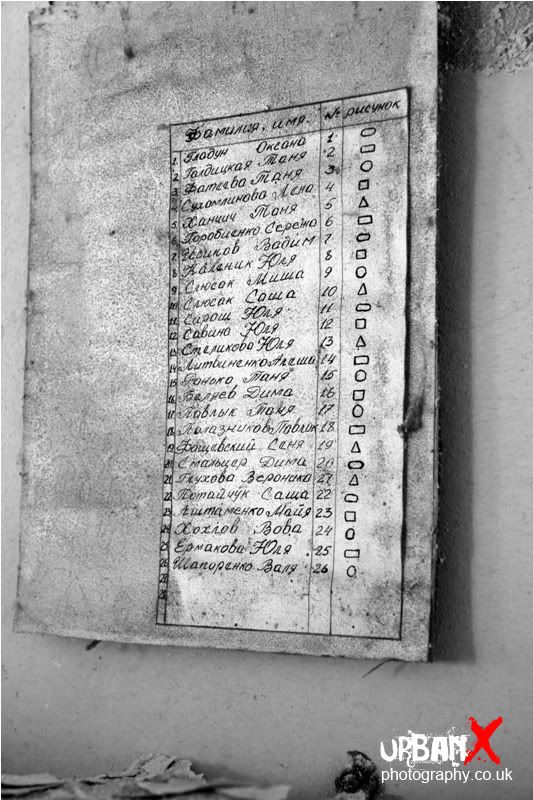 Фамилия, имя. № рисунок
1. Гладун Оксана 1
2. Галдицкая Таня 2
3. Фатеева Таня 3
4. Сухомлинова Лена 4
5. Ханчич Таня 5
6. Горобиенко Сережа 6
7. Усиков Вадим 7
8. Каленик Юля 8
9. Слюсак Миша 9
10. Слюсак Саша 10
11. Сирош Юля 11
12. Савино Юля 12
13. Стеликова Юля 13
14. Литвиненко Алеша 14
15. Ронько Таня 15
16. Беляев Дима 16
17. Павлык Таня 17
18. Полазников Павлик 18
19. Фащевский Сеня 19
20. Смальцер Дима 20
21. Глухова Вероника 21
22. Потайчук Саша 22
23. Аштаменко Майя 23
24. Хохлов Вова 24
25. Ермакова Юля 25
26. Шапоренко Валя 26
27.
28.
URBANX
photography.co.uk